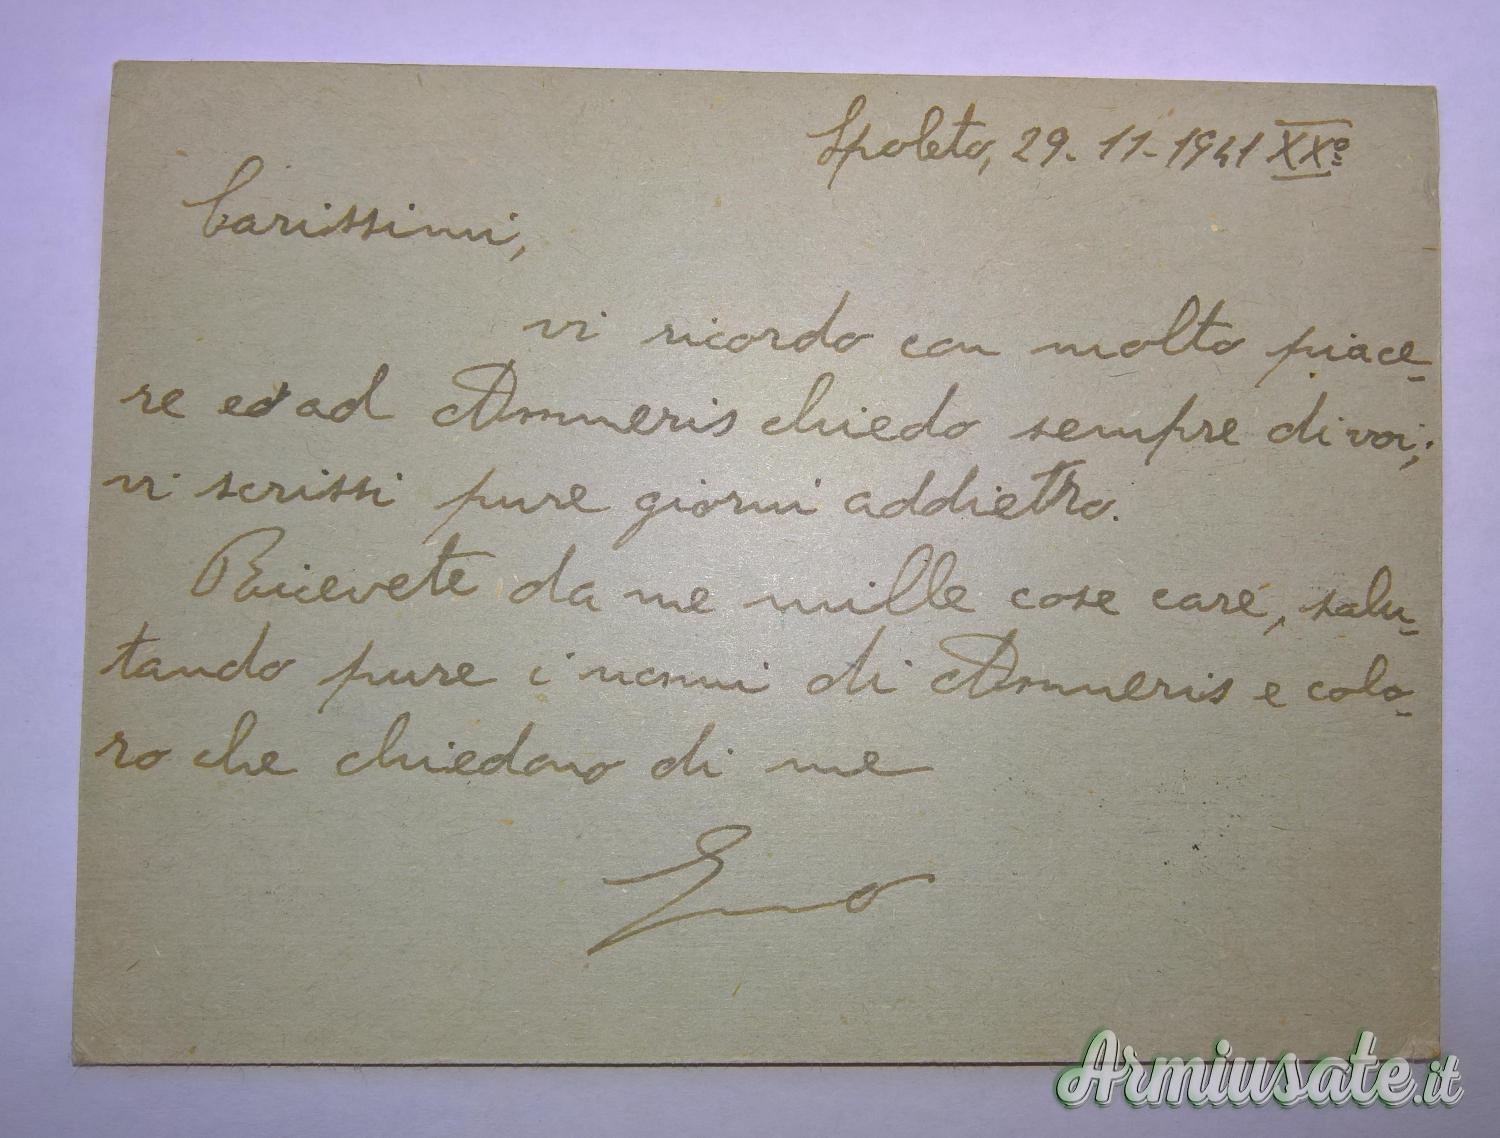 Spoleto, 29-11-1941 XXº
Carissimi,
vi ricordo con molto piace-
re ed ad Amneris chiedo sempre di voi;
vi scrissi pure giorni addietro.
Ricevete da me mille cose care, salu-
tando pure i nonni di Amneris e colo-
ro che chiedono di me
Armiusate.it